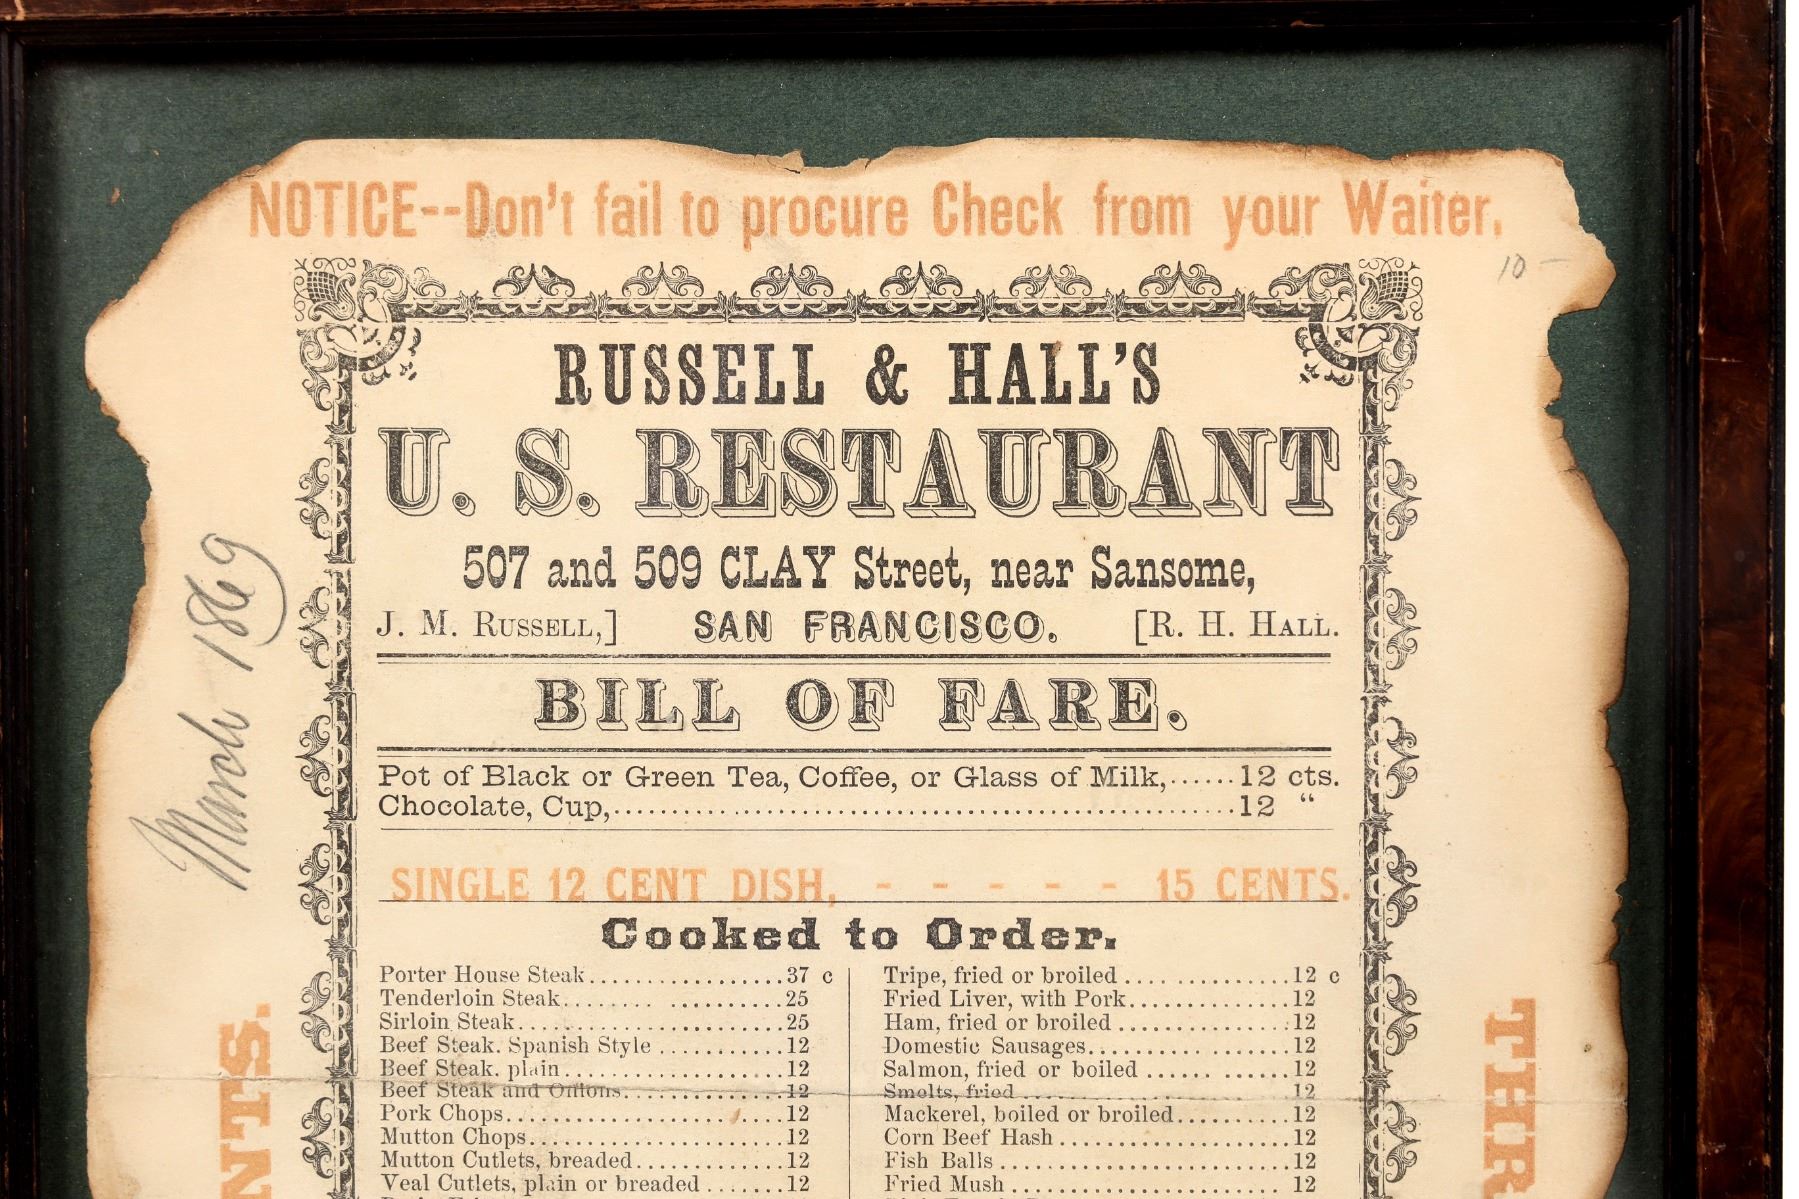 NOTICE--Don't fail to procure Check from your Waiter.
10 –
RUSSELL & HALL'S
U. S. RESTAURANT
507 and 509 CLAY Street, near Sansome,
J. M. RUSSELL,] SAN FRANCISCO. [R. H. HALL.
March 1869
BILL OF FARE.
Pot of Black or Green Tea, Coffee, or Glass of Milk,......12 cts.
Chocolate, Cup,..................................................12 "
SINGLE 12 CENT DISH, - - - - - 15 CENTS.
Cooked to Order.
Porter House Steak..................37 c
Tenderloin Steak........ ..........25
Sirloin Steak........................25
Beef Steak. Spanish Style ...........12
Beef Steak. plain....................12
Beef Steak and Onions................12
Pork Chops..........................12
Mutton Chops.......................12
Mutton Cutlets, breaded..............12
Veal Cutlets, plain or breaded .......12
Tripe, fried or broiled..... ..........12 c
Fried Liver, with Pork...............12
Ham, fried or broiled ................12
Domestic Sausages........... ........12
Salmon, fried or boiled ...... ......12
Smolts, fried ........................12
Mackerel, boiled or broiled...........12
Corn Beef Hash .....................12
Fish Balls ..........................12
Fried Mush ......................... 12
NTS.
THIR